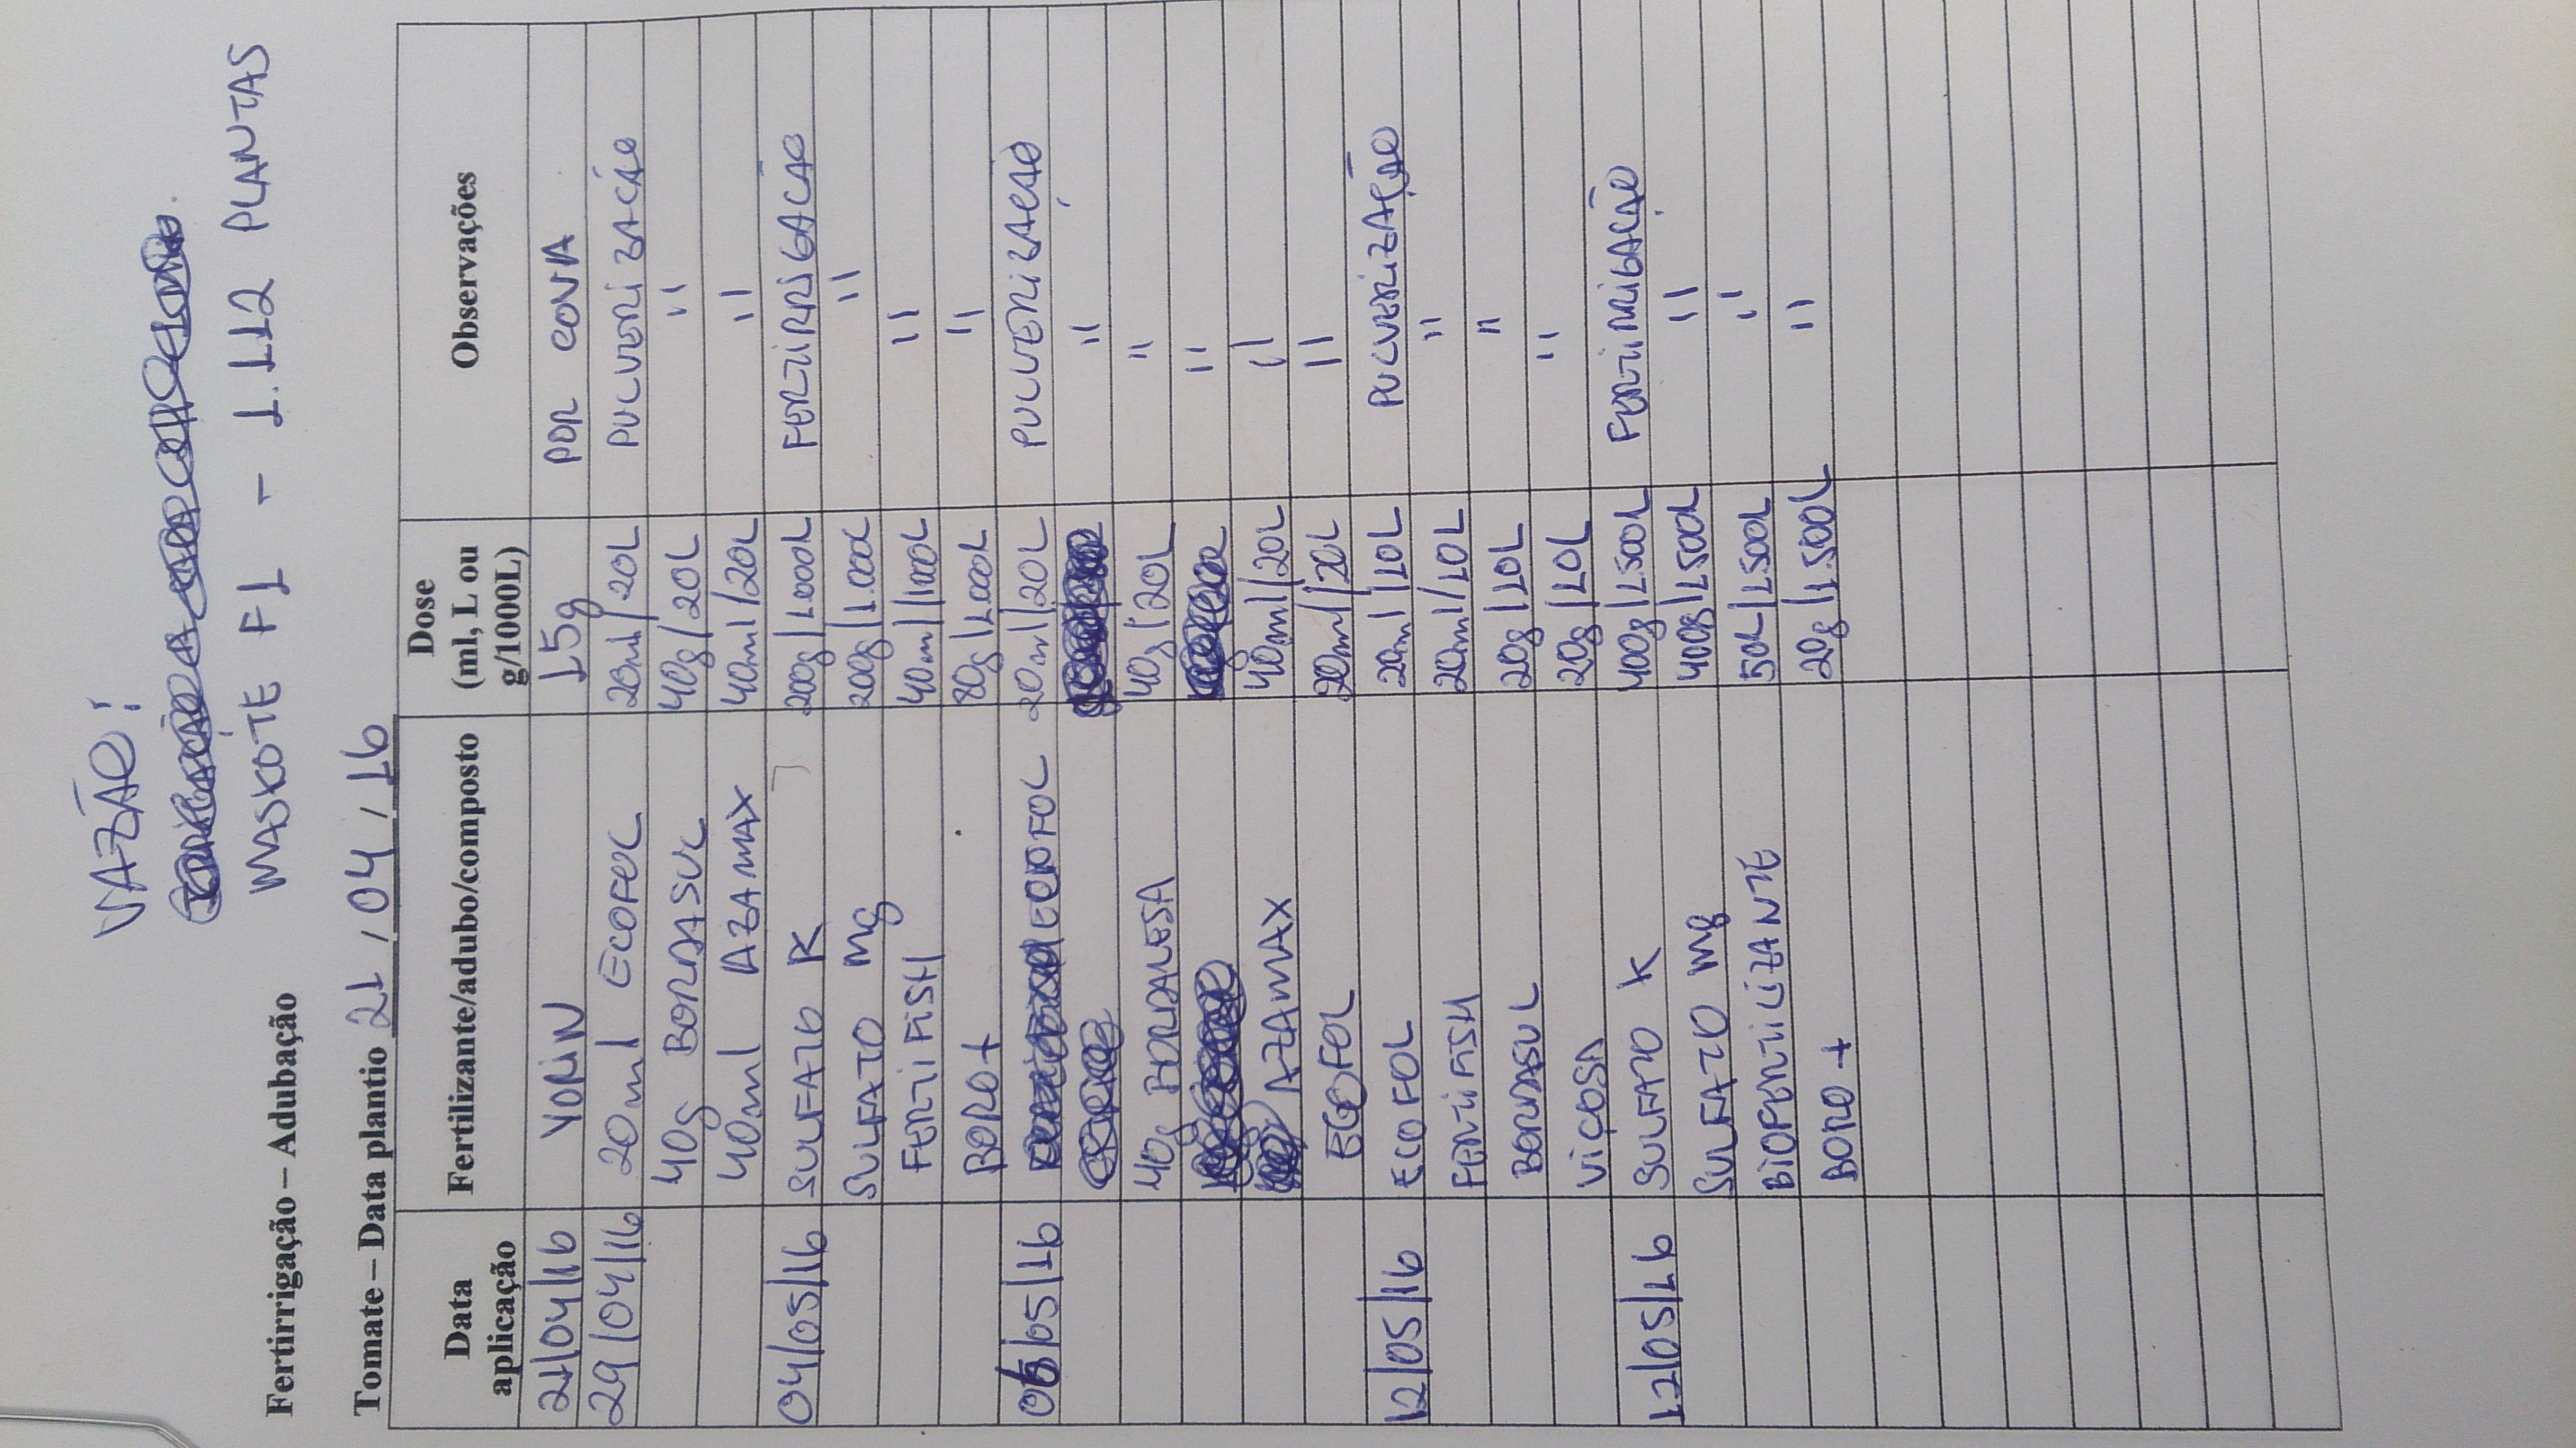 VAZÃO:
MASKOTE F1 - 1.112 PLANTAS
Fertirrigação – Adubação
Tomate – Data plantio 21/04/16
Data aplicação Fertilizante/adubo/composto Dose (ml, L ou g/1000L) Observações
21/04/16 YORIN 15g POR COVA
29/04/16 20ml ECOFOL 20ml/20L PULVERIZAÇÃO
40g BORDASUL 40g/20L "
40ml AZAMAX 40ml/20L "
04/05/16 SULFATO K 200g/1.000L FERTIRRIGAÇÃO
SULFATO Mg 200g/1.000L "
FERTIFISH 40ml/1000L "
BORO+ 80g/1.000L "
/05/16 ECOFOL 20ml/20L PULVERIZAÇÃO
"
40g BORDALESA 40g/20L "
"
AZAMAX 40ml/20L "
ECOFOL 20ml/20L "
12/05/16 ECOFOL 20ml/10L PULVERIZAÇÃO
FERTIFISH 20ml/10L "
BORDASUL 20g/10L "
VIÇOSA 20g/10L "
12/05/16 SULFATO K 400g/1.500L FERTIRRIGAÇÃO
SULFATO Mg 400g/1.500L "
BIOFERTILIZANTE 50L/1.500L "
BORO + 20g/1.500L "